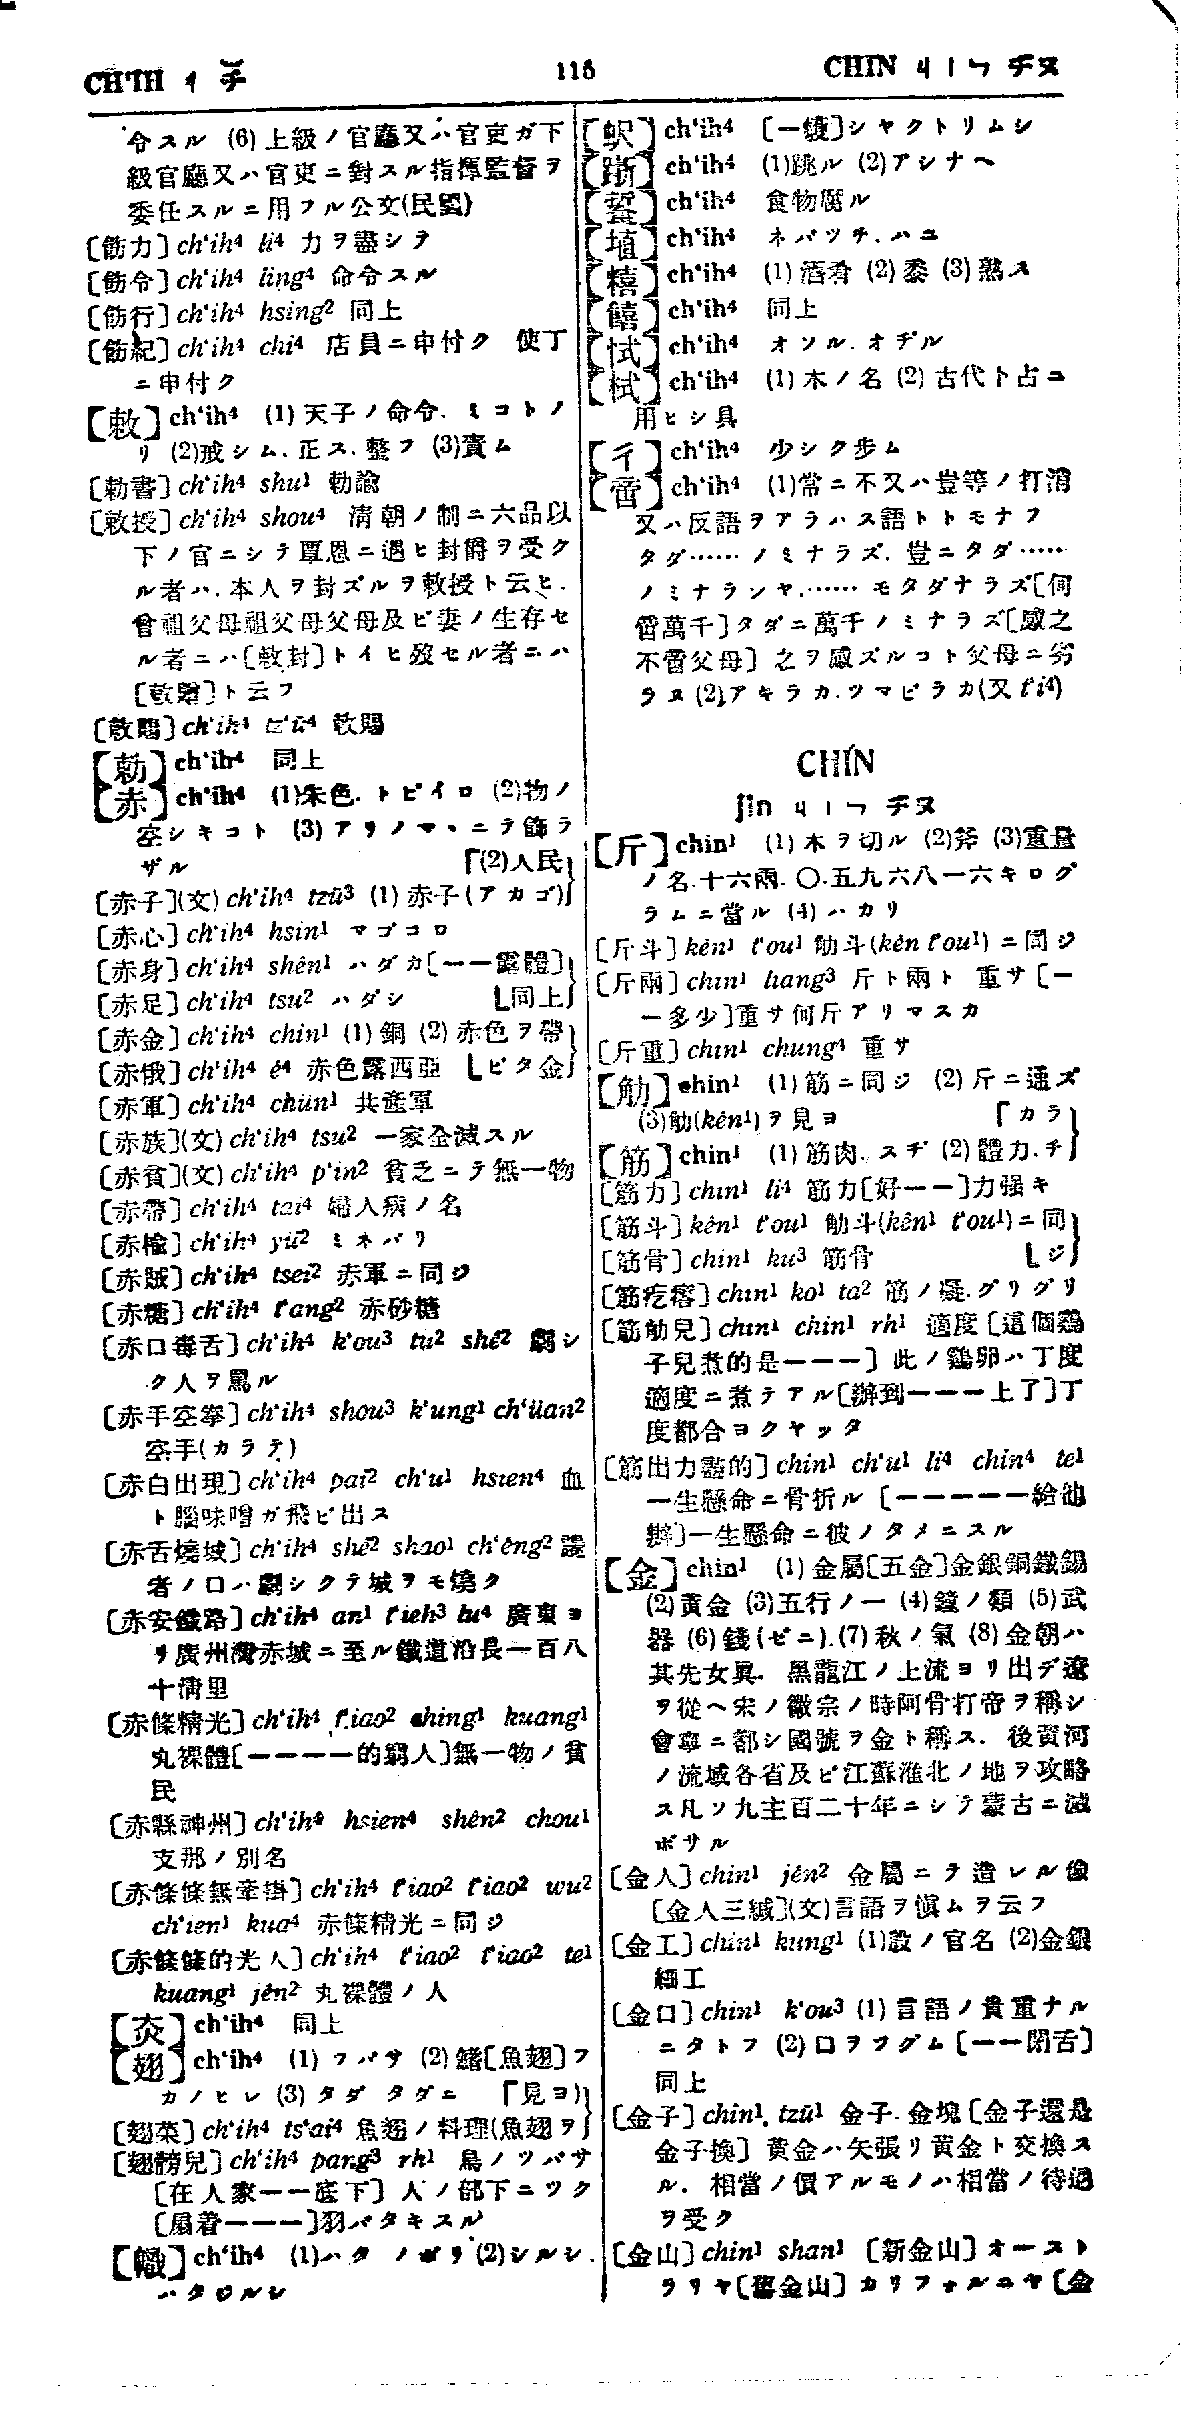 CH'IH ㄔ チ
115
CHIN ㄐㄧㄣ チヌ
令スル (6)上級ノ官廳又ハ官吏ガ下
級官廳又ハ官吏ニ對スル指揮監督ヲ
委任スルニ用フル公文(民國)
[飭力] ch'ih⁴ li⁴ 力ヲ盡シテ
[飭令] ch'ih⁴ ling⁴ 命令スル
[飭行] ch'ih⁴ hsing² 同上
[飭紀] ch'ih⁴ chi⁴ 店員ニ申付ク 使丁
ニ申付ク
【敕】ch'ih⁴ (1)天子ノ命令. ミコトノ
リ (2)戒シム.正ス.整フ (3)責ム
[勅書] ch'ih⁴ shu¹ 勅諭
[敕授] ch'ih⁴ shou⁴ 清朝ノ制ニ六品以
下ノ官ニシテ覃恩ニ遇ヒ封爵ヲ受ク
ル者ハ.本人ヲ封ズルヲ敕授ト云ヒ.
曾祖父母祖父母父母及ビ妻ノ生存セ
ル者ニハ[敕封]トイヒ歿セル者ニハ
[敕贈]ト云フ
[敕賜] ch'ih⁴ tz'ŭ⁴ 敕賜
【勅】ch'ih⁴ 同上
【赤】ch'ih⁴ (1)朱色.トビイロ (2)物ノ
空シキコト (3)アリノマヽニテ飾ラ
ザル 「(2)人民
[赤子](文) ch'ih⁴ tzŭ³ (1)赤子(アカゴ)
[赤心] ch'ih⁴ hsin¹ マゴコロ
[赤身] ch'ih⁴ shên¹ ハダカ[一一露體]
[赤足] ch'ih⁴ tsu² ハダシ 〔同上
[赤金] ch'ih⁴ chin¹ (1)銅 (2)赤色ヲ帶
[赤俄] ch'ih⁴ ê⁴ 赤色露西亞 〔ビタ金
[赤軍] ch'ih⁴ chün¹ 共産軍
[赤族](文) ch'ih⁴ tsu² 一家全滅スル
[赤貧](文) ch'ih⁴ p'in² 貧乏ニテ無一物
[赤帶] ch'ih⁴ tai⁴ 婦人病ノ名
[赤楡] ch'ih⁴ yü² ミネバリ
[赤賊] ch'ih⁴ tsei² 赤軍ニ同ジ
[赤糖] ch'ih⁴ t'ang² 赤砂糖
[赤口毒舌] ch'ih⁴ k'ou³ tu² shê² 劇シ
ク人ヲ罵ル
[赤手空拳] ch'ih⁴ shou³ k'ung¹ ch'üan²
空手(カラテ)
[赤白出現] ch'ih⁴ pai² ch'u¹ hsien⁴ 血
ト腦味噌ガ飛ビ出ス
[赤舌燒城] ch'ih⁴ shê² shao¹ ch'êng² 讒
者ノ口ハ劇シクテ城ヲモ燒ク
[赤安鐵路] ch'ih⁴ an¹ t'ieh³ lu⁴ 廣東ヨ
リ廣州灣赤城ニ至ル鐵道沿長一百八
十淸里
[赤條精光] ch'ih⁴ t'iao² ching¹ kuang¹
丸裸體[一一一一的窮人]無一物ノ貧
民
[赤縣神州] ch'ih⁴ hsien⁴ shên² chou¹
支那ノ別名
[赤條條無牽掛] ch'ih⁴ t'iao² t'iao² wu²
ch'ien¹ kua⁴ 赤條精光ニ同ジ
[赤條條的光人] ch'ih⁴ t'iao² t'iao² te¹
kuang¹ jên² 丸裸體ノ人
【灻】ch'ih⁴ 同上
【翅】ch'ih⁴ (1)ツバサ (2)鰭[魚翅]フ
カノヒレ (3)タダ タダニ 「見ヨ)
[翅菜] ch'ih⁴ ts'ai⁴ 魚翅ノ料理(魚翅ヲ
[翅髈兒] ch'ih⁴ pang³ rh¹ 鳥ノツバサ
[在人家一一底下] 人ノ部下ニツク
[扇着一一一]羽バタキスル
【幟】ch'ih⁴ (1)ハタ ノボリ (2)シルシ.
ハタジルシ
【蚇】ch'ih⁴ [一蠖]シヤクトリムシ
【跅】ch'ih⁴ (1)跳ル (2)アシナヘ
ch'ih⁴ 食物腐ル
【埴】ch'ih⁴ ネバツチ.ハニ
【糦】ch'ih⁴ (1)酒肴 (2)黍 (3)熟ス
【饎】ch'ih⁴ 同上
【恜】ch'ih⁴ オソル.オヂル
【栻】ch'ih⁴ (1)木ノ名 (2)古代ト占ニ
用ヒシ具
【彳】ch'ih⁴ 少シク歩ム
【啻】ch'ih⁴ (1)常ニ不又ハ豈等ノ打消
又ハ反語ヲアラハス語トトモナフ
タダ……ノミナラズ.豈ニタダ……
ノミナランヤ.……モタダナラズ[何
啻萬千]タダニ萬千ノミナラズ[感之
不啻父母] 之ヲ感ズルコト父母ニ劣
ラヌ (2)アキラカ.ツマビラカ(又 t'i⁴)
CHIN
jin ㄐㄧㄣ チヌ
【斤】chin¹ (1)木ヲ切ル (2)斧 (3)重量
ノ名.十六兩.〇.五九六八一六キログ
ラムニ當ル (4)ハカリ
[斤斗] kên¹ t'ou¹ 觔斗(kên t'ou¹) ニ同ジ
[斤兩] chin¹ liang³ 斤ト兩ト 重サ[一
一多少]重サ何斤アリマスカ
[斤重] chin¹ chung⁴ 重サ
【觔】chin¹ (1)筋ニ同ジ (2)斤ニ通ズ
(3)觔(kên¹)ヲ見ヨ 「カラ
【筋】chin¹ (1)筋肉.スヂ (2)體力.チ
[筋力] chin¹ li⁴ 筋力[好一一]力强キ
[筋斗] kên¹ t'ou¹ 觔斗(kên¹ t'ou¹)ニ同
[筋骨] chin¹ ku³ 筋骨 〔ジ
[筋疙瘩] chin¹ ko¹ ta² 筋ノ凝.グリグリ
[筋觔兒] chin¹ chin¹ rh¹ 適度[這個鷄
子兒煮的是一一一] 此ノ鷄卵ハ丁度
適度ニ煮テアル[辦到一一一上了]丁
度都合ヨクヤッタ
[筋出力盡的] chin¹ ch'u¹ li⁴ chin⁴ te¹
一生懸命ニ骨折ル [一一一一一給他
辦]一生懸命ニ彼ノタメニスル
【金】chin¹ (1)金屬[五金]金銀銅鐵錫
(2)黄金 (3)五行ノ一 (4)鐘ノ類 (5)武
器 (6)錢(ゼニ).(7)秋ノ氣 (8)金朝ハ
其先女眞. 黑龍江ノ上流ヨリ出デ遼
ヲ從ヘ宋ノ徽宗ノ時阿骨打帝ヲ稱シ
會寧ニ都シ國號ヲ金ト稱ス. 後黄河
ノ流域各省及ビ江蘇淮北ノ地ヲ攻略
ス凡ソ九主百二十年ニシテ蒙古ニ滅
ボサル
[金人] chin¹ jên² 金屬ニテ造レル像
[金人三緘](文)言語ヲ愼ムヲ云フ
[金工] chin¹ kung¹ (1)殷ノ官名 (2)金銀
細工
[金口] chin¹ k'ou³ (1)言語ノ貴重ナル
ニタトフ (2)口ヲツグム[一一閉舌]
同上
[金子] chin¹ tzŭ¹ 金子.金塊[金子還是
金子換] 黄金ハ矢張リ黄金ト交換ス
ル. 相當ノ價アルモノハ相當ノ待遇
ヲ受ク
[金山] chin¹ shan¹ [新金山]オースト
ラリヤ[舊金山]カリフォルニヤ[金